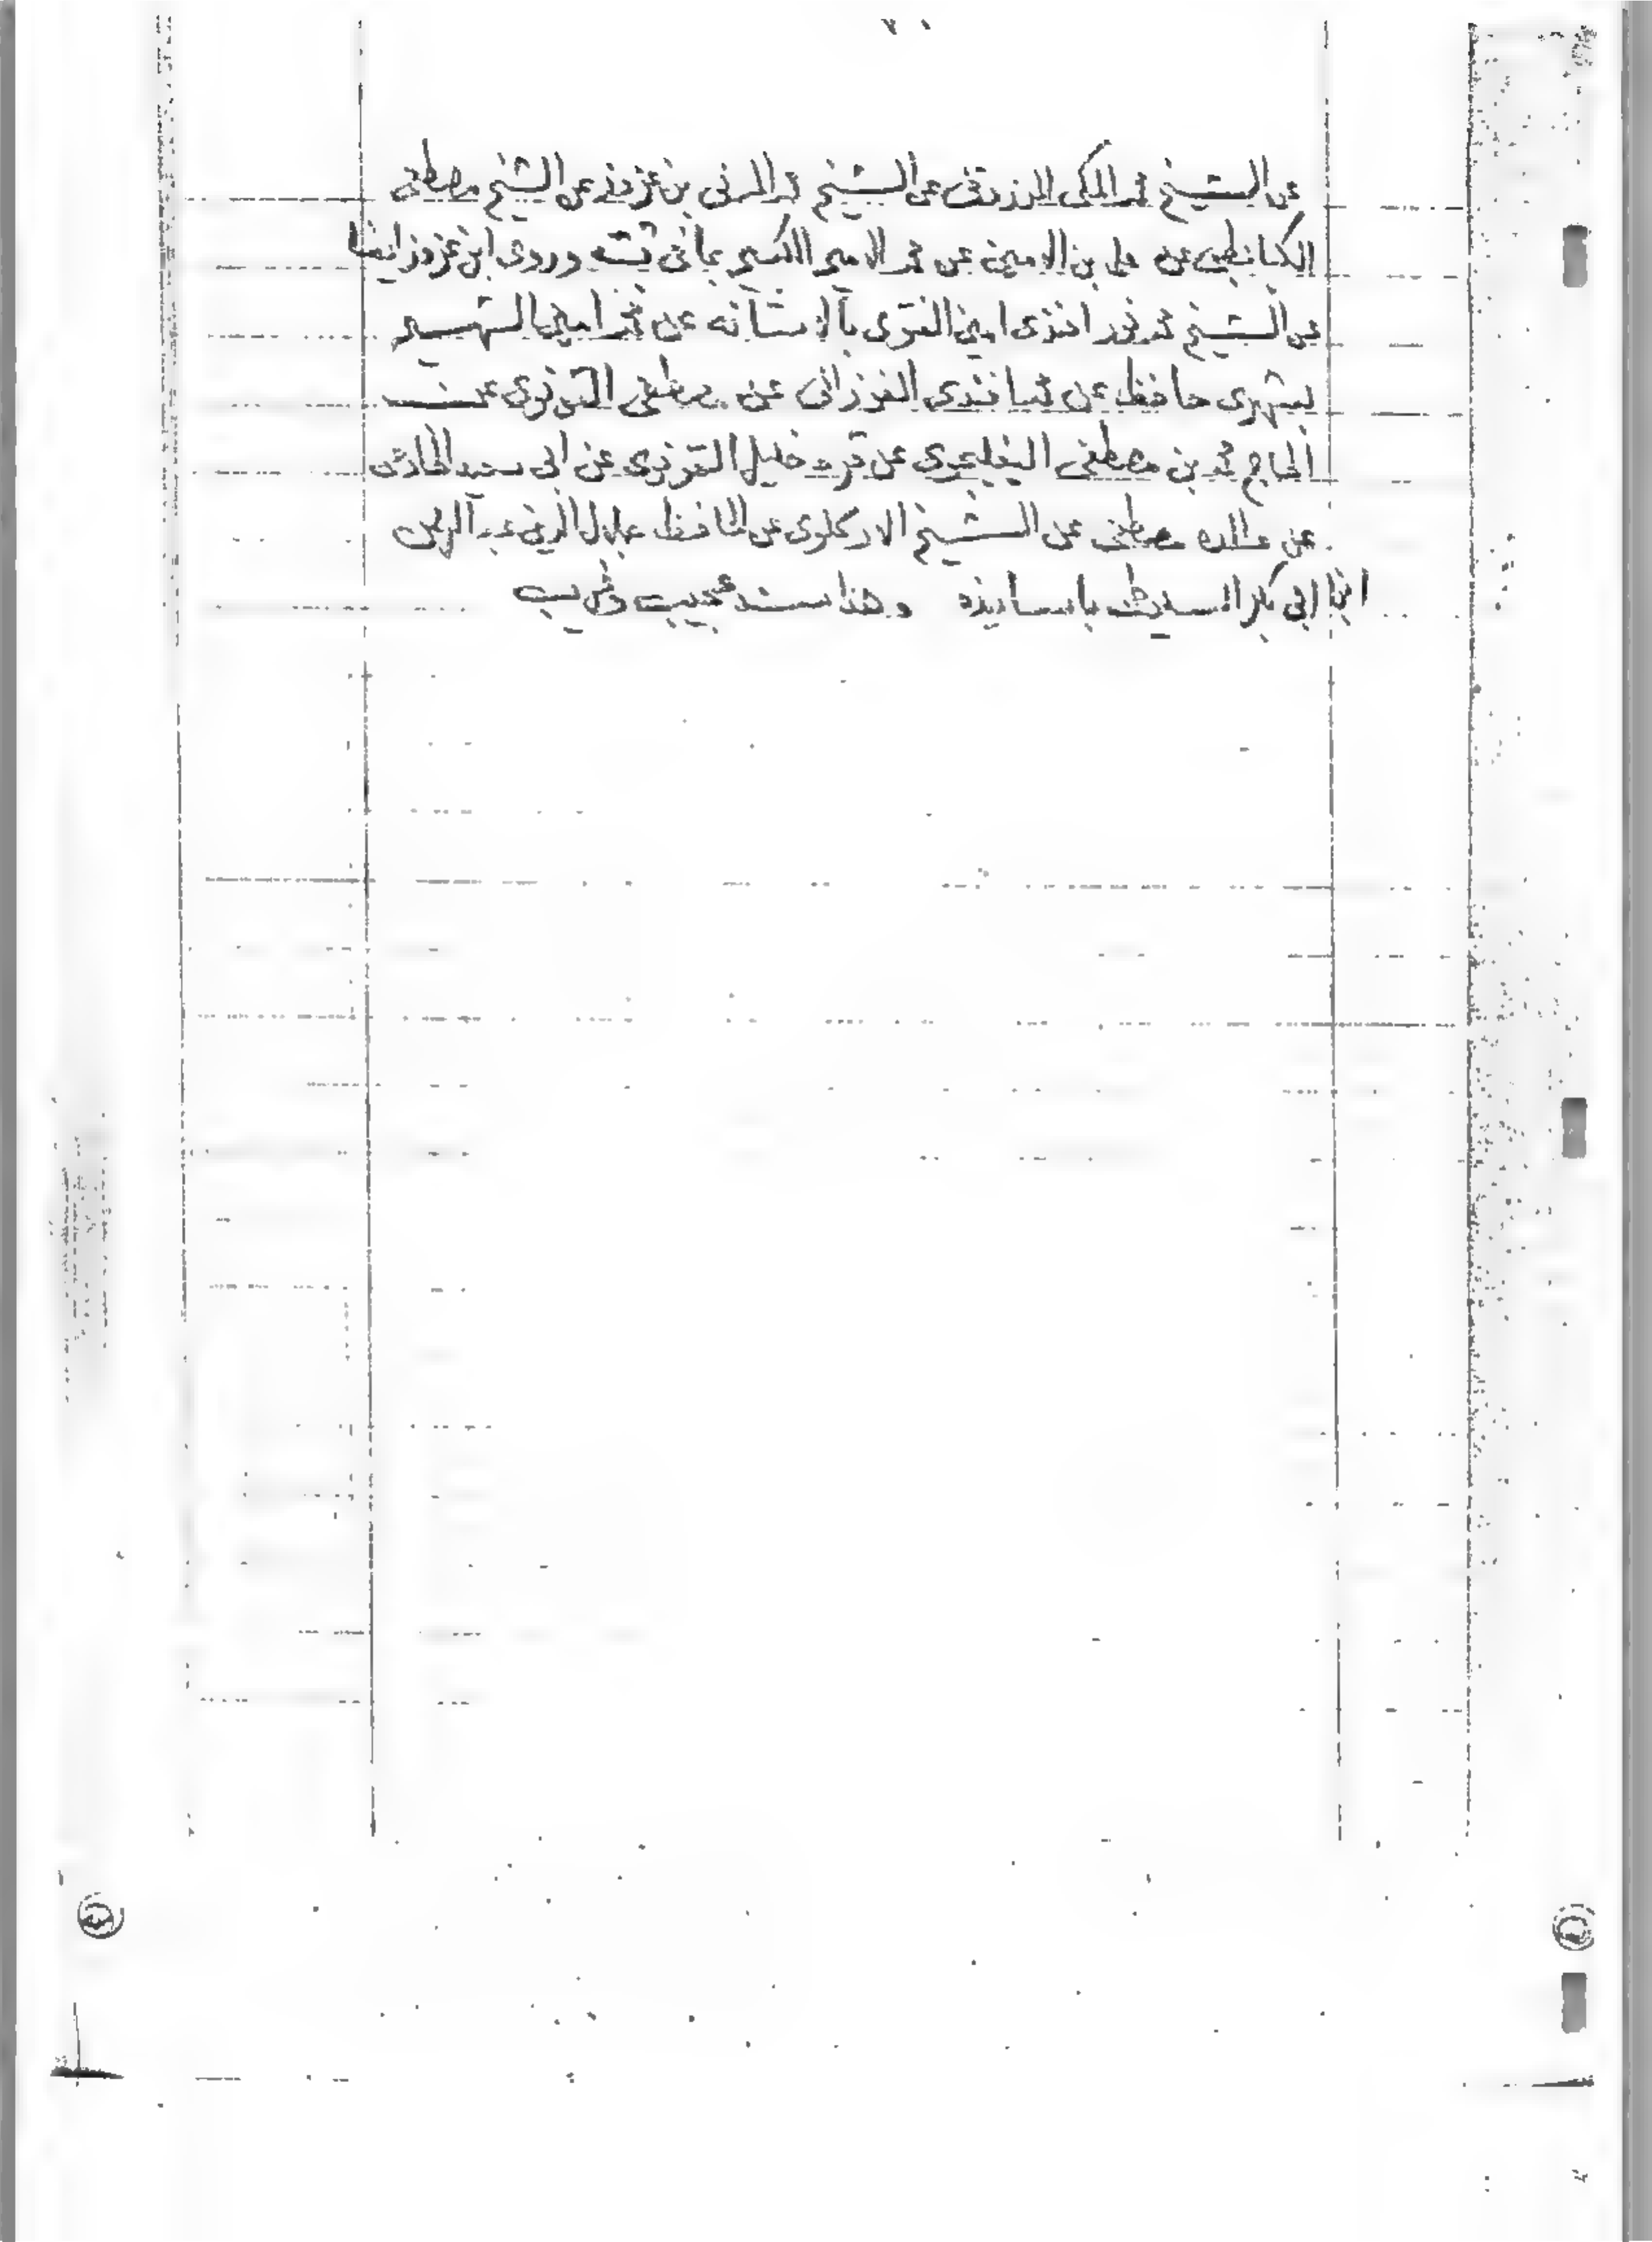 عن الشيخ محمد المكي المرزوقي عن الشيخ محمد المدني بن عزوز عن الشيخ مصطفى
الكبابطي عن علي بن الامين عن محمد الامير الكبير بما في ثبته وروى ابن عزوز ايضا
عن الشيخ محمد نور افندى امين الفتوى بالاستانه عن محمد امين الشهير
بشهرى حافظ عن افندى عن مصطفى القونوى عن
الحاج محمد بن مصطفى عن قره خليل القونوى عن ابى سعيد الخادمى
عن والده مصطفى عن الشيخ عن الحافظ جلال الدين عبد الرحمن
ابن ابى بكر السيوطى باسانيذه وهذا سند عجيب وغريب